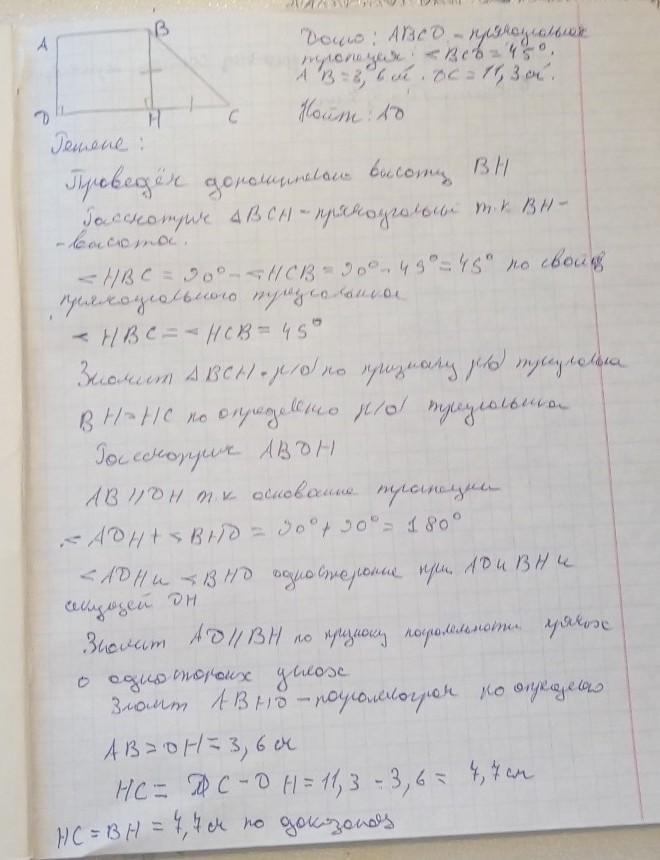 A B
D H C
Дано: ABCD - прямоугольная
трапеция. <BCD = 45°.
AB = 3,6 см. DC = 11,3 см.
Найти: AD
Решение:
Проведём дополнительно высоту BH
Рассмотрим ΔBCH - прямоугольный т.к BH -
- высота.
<HBC = 90° - <HCB = 90° - 45° = 45° по свойству
прямоугольного треугольника
<HBC = <HCB = 45°
Значит ΔBCH - р/б по признаку р/б треугольника
BH = HC по определению р/б треугольника
Рассмотрим ABDH
AB // DH т.к основание трапеции
<ADH + <BHD = 90° + 90° = 180°
<ADH и <BHD односторонние при AD и BH и
секущей DH
Значит AD // BH по признаку параллельности прямых
о односторонних углах
Значит ABHD - параллелограм по определению
AB = DH = 3,6 см
HC = DC - DH = 11,3 - 3,6 = 7,7 см
HC = BH = 7,7 см по доказаному